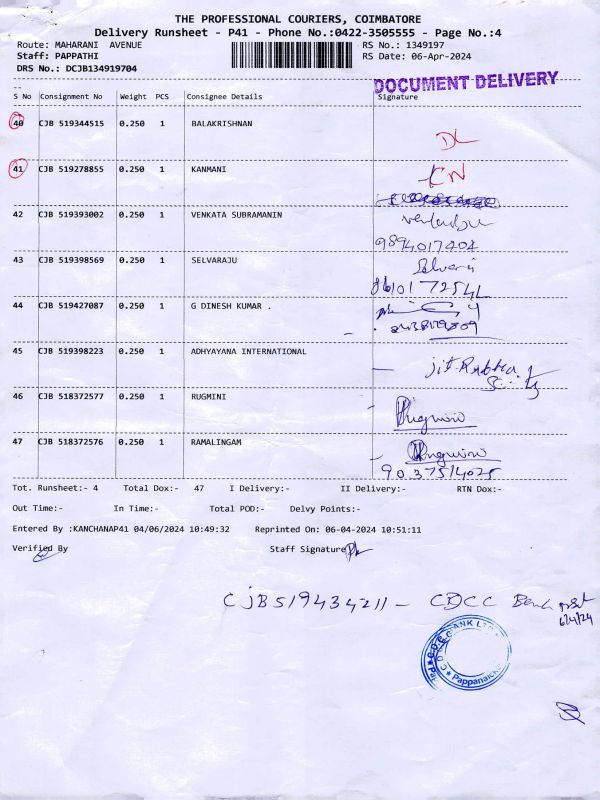 THE PROFESSIONAL COURIERS, COIMBATORE
Delivery Runsheet - P41 - Phone No.:0422-3505555 - Page No.:4
Route: MAHARANI AVENUE RS No.: 1349197
Staff: PAPPATHI RS Date: 06-Apr-2024
DRS No.: DCJB134919704
DOCUMENT DELIVERY
S No Consignment No Weight PCS Consignee Details Signature
40 CJB 519344515 0.250 1 BALAKRISHNAN DL
41 CJB 519278855 0.250 1 KANMANI CN
42 CJB 519393002 0.250 1 VENKATA SUBRAMANIN
9894017404
43 CJB 519398569 0.250 1 SELVARAJU Selvaraj
8610172541
44 CJB 519427087 0.250 1 G DINESH KUMAR .
45 CJB 519398223 0.250 1 ADHYAYANA INTERNATIONAL
46 CJB 518372577 0.250 1 RUGMINI Rugmini
47 CJB 518372576 0.250 1 RAMALINGAM Rugmini
9037514025
Tot. Runsheet:- 4 Total Dox:- 47 I Delivery:- II Delivery:- RTN Dox:-
Out Time:- In Time:- Total POD:- Delvy Points:-
Entered By :KANCHANAP41 04/06/2024 10:49:32 Reprinted On: 06-04-2024 10:51:11
Verified By Staff Signature
CJB519434211 - CDCC Bank
6/4/24